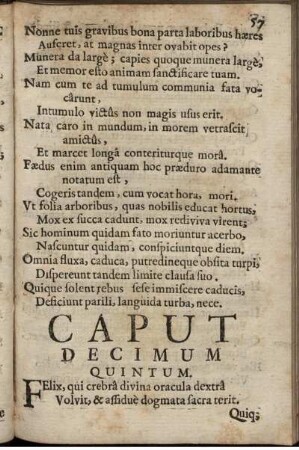 57
Nonne tuis gravibus bona parta laboribus hæres
Auferet, at magnas inter ovabit opes?
Munera da largè; capies quoque munera largè,
Et memor esto animam sanctificare tuam.
Nam cum te ad tumulum communia fata vo-
cârunt,
Intumulo victûs non magis usus erit.
Nata caro in mundum, in morem vetrascit
amictûs,
Et marcet longâ conteriturque morâ.
Fædus enim antiquam hoc præduro adamante
notatum est,
Cogeris tandem, cum vocat hora, mori.
Vt folia arboribus, quas nobilis educat hortus,
Mox ex succa cadunt, mox rediviva virent;
Sic hominum quidam fato moriuntur acerbo,
Nascuntur quidam, conspiciuntque diem.
Omnia fluxa, caduca, putredineque obsita turpi,
Dispereunt tandem limite clausa suo.
Quique solent rebus sese immiscere caducis,
Deficiunt parili, languida turba, nece.
CAPUT
DECIMUM
QUINTUM.
FElix, qui crebrâ divina oracula dextrâ
Volvit, & assiduè dogmata sacra terit.
Quiq;